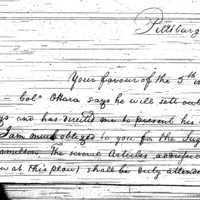 Pittsburg
Your favour of the 5th in
Colo OHara says he will sett out
and has directed me to present his
I am much obliged to you for the Sug
Hamilton The several Articles
at this place) shall be duly attende